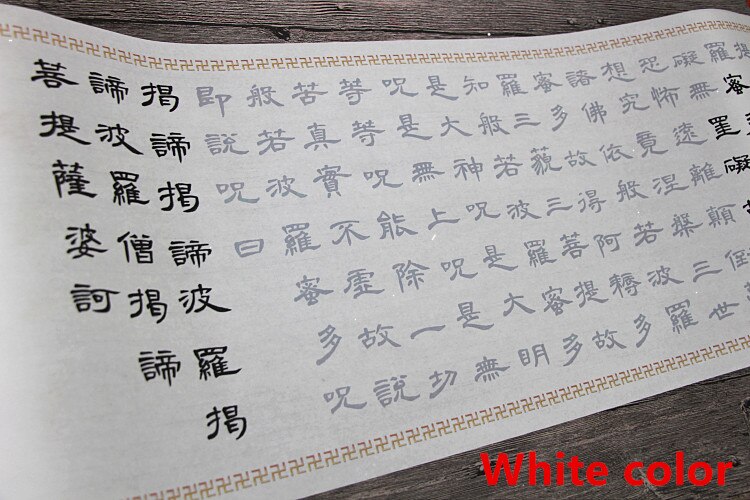 提
羅蜜
礙無罣礙
恐怖遠離顛倒
想究竟涅槃三世
諸佛依般若波羅
蜜多故得阿耨多
羅三藐三菩提故
知般若波羅蜜多
是大神咒是大明
咒是無上咒是無
等等咒能除一切
苦真實不虛故說
般若波羅蜜多咒
即說咒曰
揭諦揭諦波羅揭
諦波羅僧揭諦
菩提薩婆訶
White color